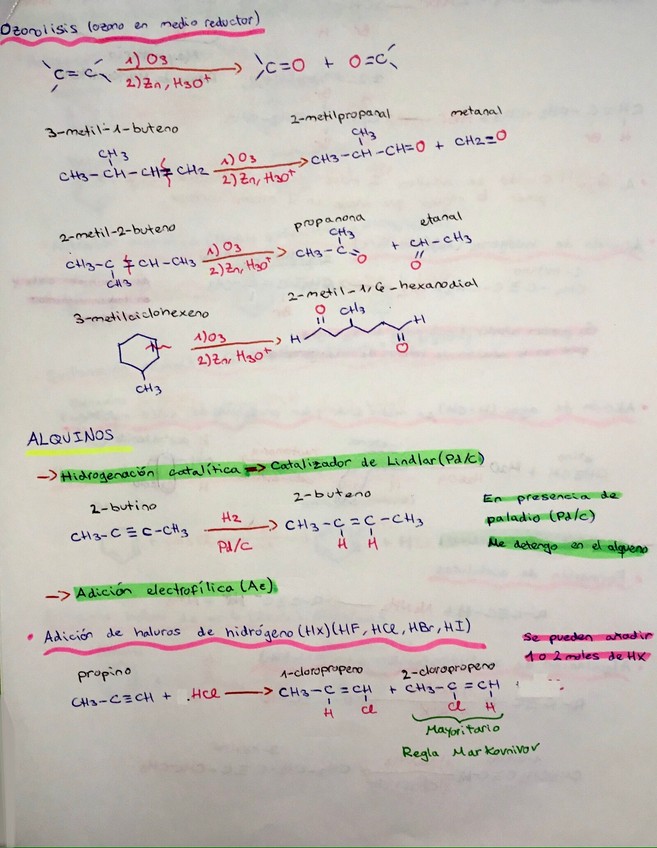 Ozonolisis (ozono en medio reductor)
C=C 1) O3 2) Zn, H3O+ C=O + O=C
3-metil-1-buteno 2-metilpropanal metanal
CH3 CH3
CH3-CH-CH=CH2 1) O3 2) Zn, H3O+ CH3-CH-CH=O + CH2=O
2-metil-2-buteno propanona etanal
CH3
CH3-C=CH-CH3 1) O3 2) Zn, H3O+ CH3-C=O + CH-CH3
CH3 O
3-metilciclohexeno 2-metil-1,6-hexanodial
O CH3 H
1) O3 2) Zn, H3O+ H O
CH3
ALQUINOS
→ Hidrogenación catalítica => Catalizador de Lindlar (Pd/C)
2-butino 2-buteno En presencia de
CH3-C≡C-CH3 H2 Pd/C CH3-C=C-CH3 paladio (Pd/C)
H H Me detengo en el alqueno
→ Adición electrofílica (Ae)
• Adición de haluros de hidrógeno (HX) (HF, HCl, HBr, HI) Se pueden añadir
1 o 2 moles de HX
propino 1-cloropropeno 2-cloropropeno
CH3-C≡CH + HCl → CH3-C=CH + CH3-C=CH
H Cl Cl H
Mayoritario
Regla Markovnivov